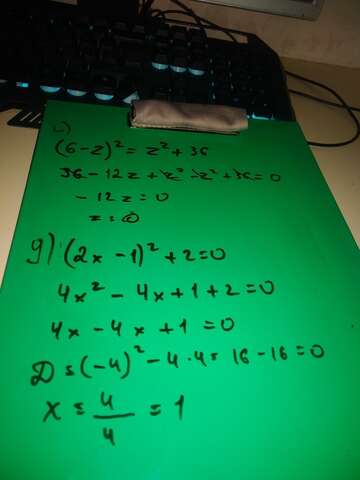 (6-z)² = z² + 36
36 - 12z + z² - z² + 36 = 0
- 12z = 0
z = 0
g) (2x - 1)² + 2 = 0
4x² - 4x + 1 + 2 = 0
4x - 4x + 1 = 0
D = (-4)² - 4 · 4 = 16 - 16 = 0
x = 4/4 = 1